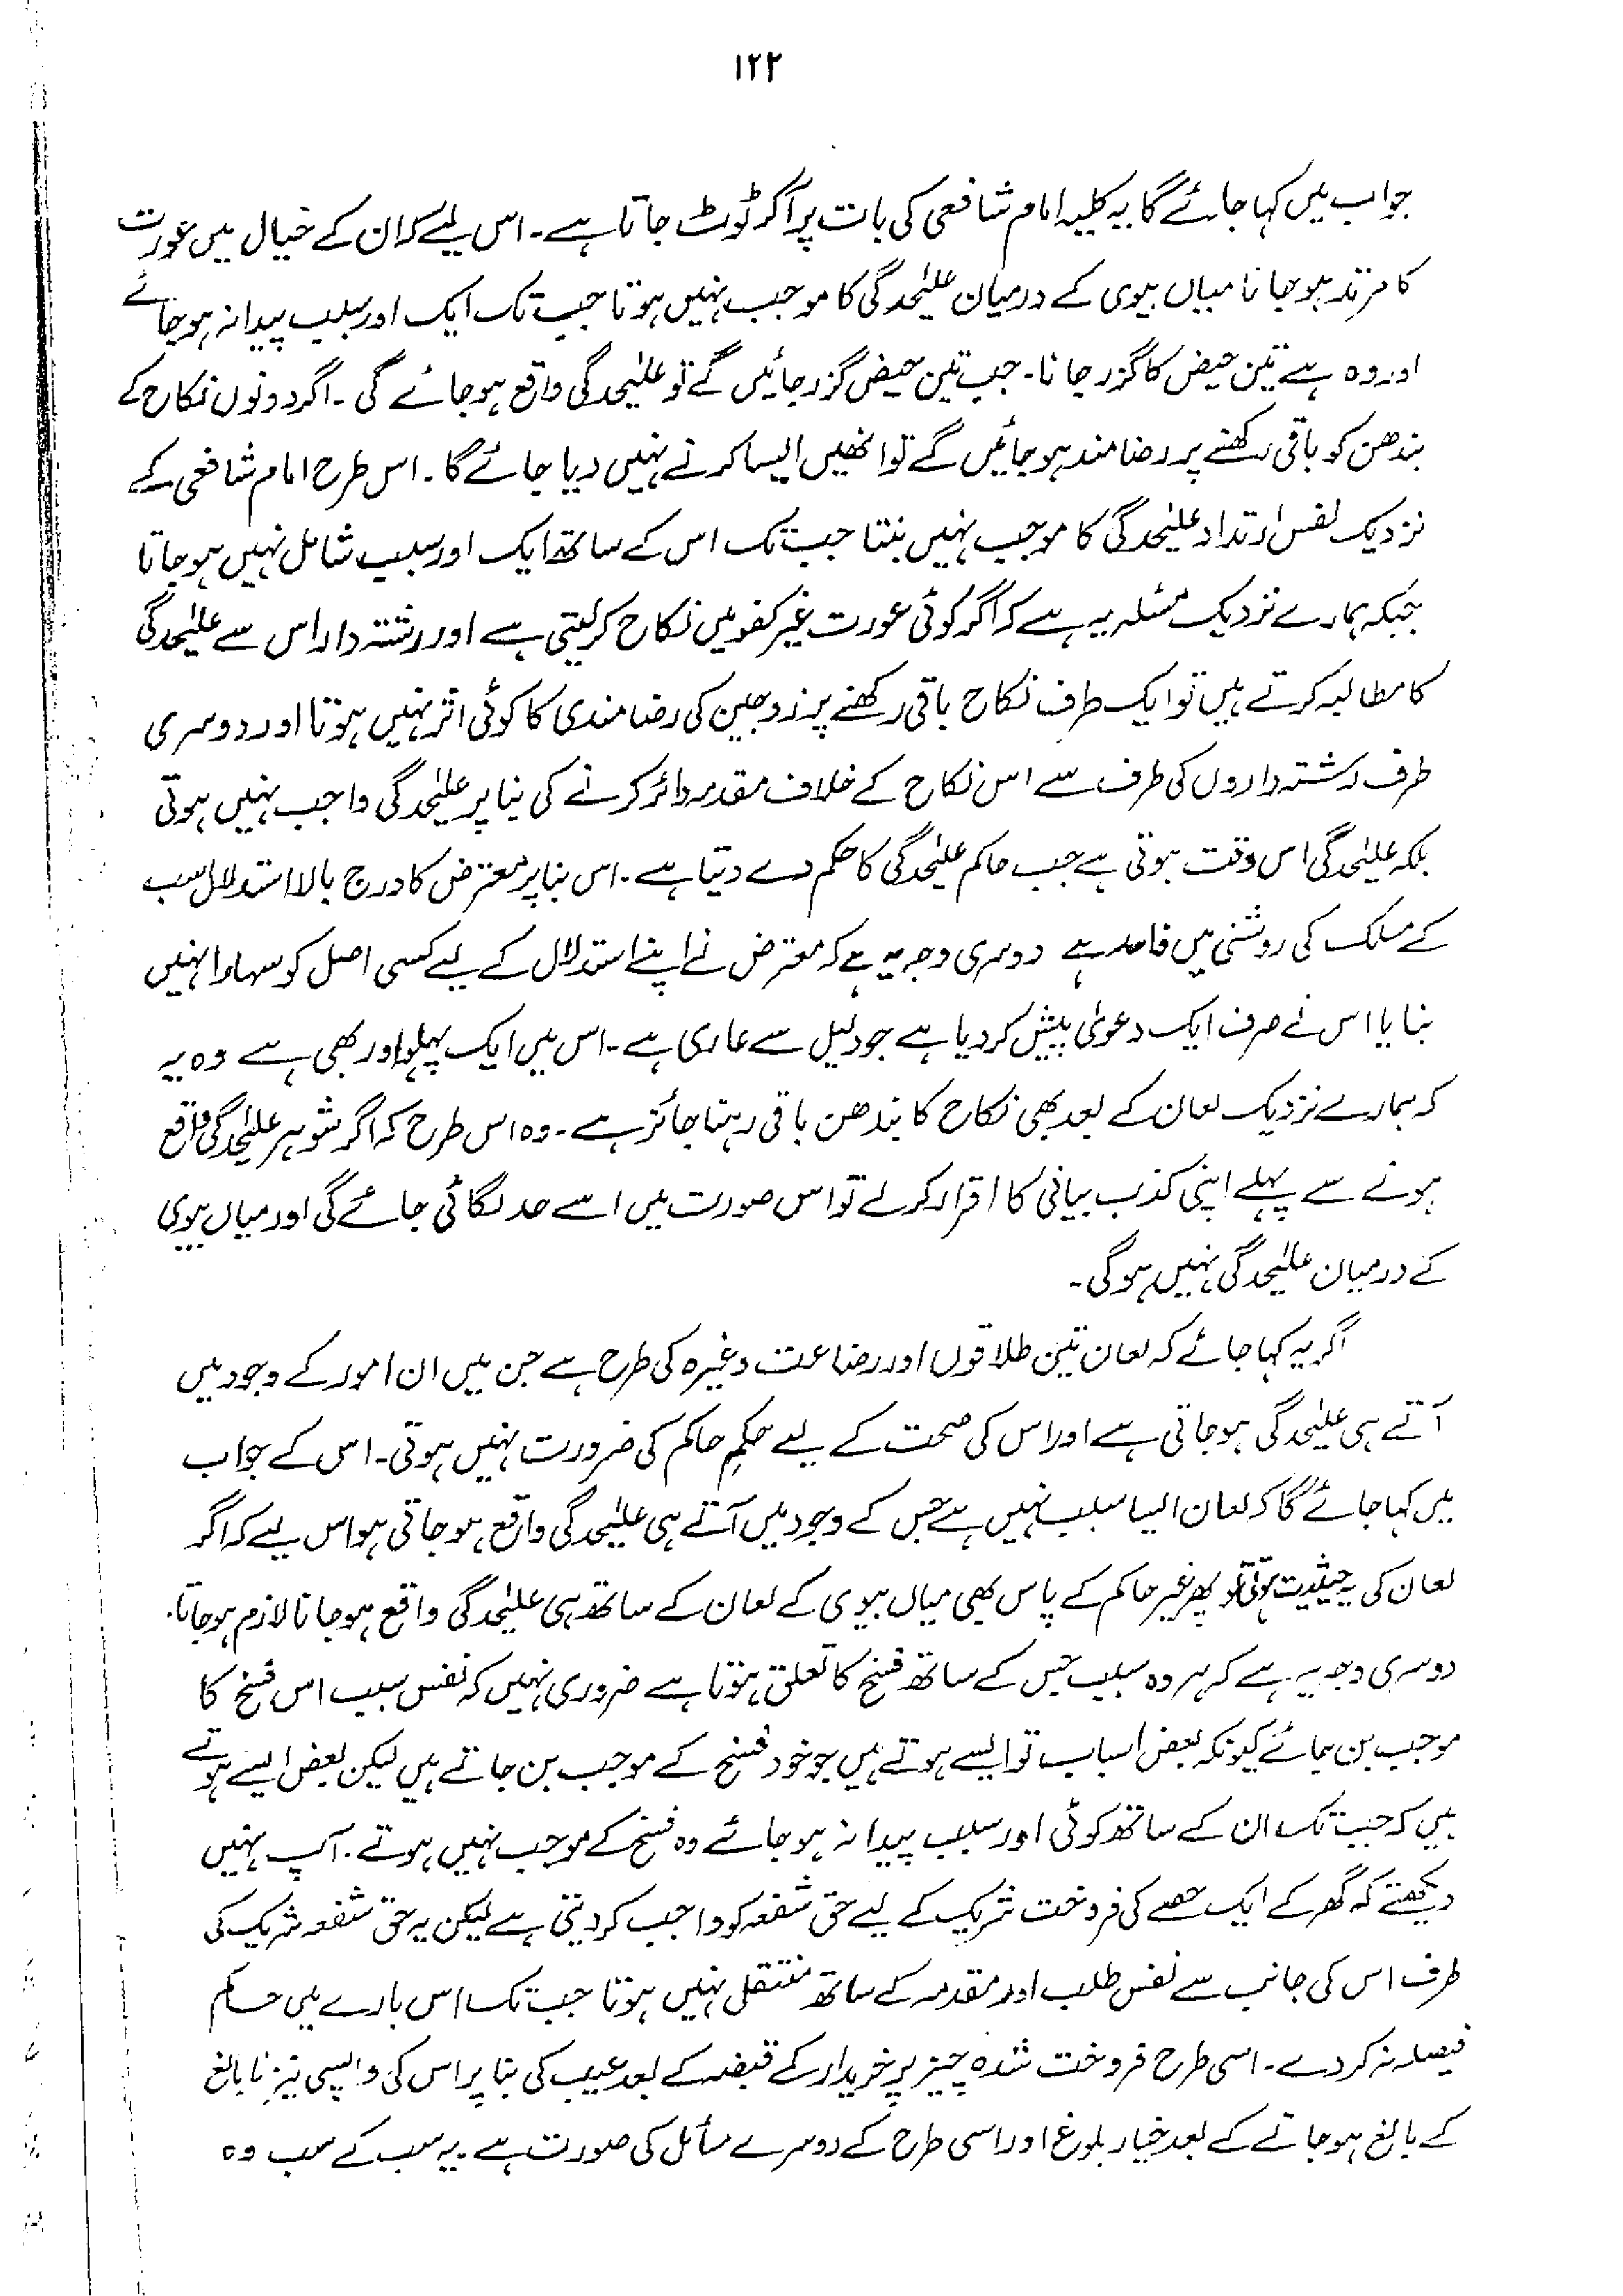 ۱۲۲
جواب میں کہا جائے گا یہ کلیہ امام شافعی کی بات پر آکر ٹوٹ جاتا ہے۔ اس لیے کہ ان کے خیال میں عورت
کا مرتد ہو جانا میاں بیوی کے درمیان علیٰحدگی کا موجب نہیں ہوتا جب تک ایک اور سبب پیدا نہ ہو جائے
اور وہ ہے تین حیض کا گزر جانا۔ جب تین حیض گزر جائیں گے تو علیٰحدگی واقع ہو جائے گی۔ اگر دونوں نکاح کے
بندھن کو باقی رکھنے پر رضامند ہو جائیں گے تو انھیں ایسا کرنے نہیں دیا جائے گا۔ اس طرح امام شافعی کے
نزدیک نفس ارتداد علیٰحدگی کا موجب نہیں بنتا جب تک اس کے ساتھ ایک اور سبب شامل نہیں ہو جاتا
جبکہ ہمارے نزدیک مسئلہ یہ ہے کہ اگر کوئی عورت غیر کفو میں نکاح کر لیتی ہے اور رشتہ دار اس سے علیٰحدگی
کا مطالبہ کرتے ہیں تو ایک طرف نکاح باقی رکھنے پر زوجین کی رضامندی کا کوئی اثر نہیں ہوتا اور دوسری
طرف رشتہ داروں کی طرف سے اس نکاح کے خلاف مقدمہ دائر کرنے کی بنا پر علیٰحدگی واجب نہیں ہوتی
بلکہ علیٰحدگی اس وقت ہوتی ہے جب حاکم علیٰحدگی کا حکم دے دیتا ہے۔ اس بنا پر معترض کا درج بالا استدلال سب
کے مسلک کی روشنی میں فاسد ہے دوسری وجہ یہ ہے کہ معترض نے اپنے استدلال کے لیے کسی اصل کو سہارا نہیں
بنایا اس نے صرف ایک دعویٰ پیش کر دیا ہے جو دلیل سے عاری ہے۔ اس میں ایک پہلو اور بھی ہے وہ یہ
کہ ہمارے نزدیک لعان کے بعد بھی نکاح کا بندھن باقی رہنا جائز ہے۔ وہ اس طرح کہ اگر شوہر علیٰحدگی واقع
ہونے سے پہلے اپنی کذب بیانی کا اقرار کر لے تو اس صورت میں اسے حد لگائی جائے گی اور میاں بیوی
کے درمیان علیٰحدگی نہیں ہوگی۔
اگر یہ کہا جائے کہ لعان تین طلاقوں اور رضاعت وغیرہ کی طرح ہے جن میں ان امور کے وجود میں
آتے ہی علیٰحدگی ہو جاتی ہے اور اس کی صحت کے لیے حکمِ حاکم کی ضرورت نہیں ہوتی۔ اس کے جواب
میں کہا جائے گا کہ لعان ایسا سبب نہیں ہے جس کے وجود میں آتے ہی علیٰحدگی واقع ہو جاتی ہو اس لیے کہ اگر
لعان کی یہ حیثیت ہوتی تو پھر غیر حاکم کے پاس بھی میاں بیوی کے لعان کے ساتھ ہی علیٰحدگی واقع ہو جانا لازم ہو جاتا۔
دوسری وجہ یہ ہے کہ ہر وہ سبب جس کے ساتھ فسخ کا تعلق ہوتا ہے ضروری نہیں کہ نفس سبب اس فسخ کا
موجب بن جائے کیونکہ بعض اسباب تو ایسے ہوتے ہیں جو خود فسخ کے موجب بن جاتے ہیں لیکن بعض ایسے ہوتے
ہیں کہ جب تک ان کے ساتھ کوئی اور سبب پیدا نہ ہو جائے وہ فسخ کے موجب نہیں ہوتے۔ آپ نہیں
دیکھتے کہ گھر کے ایک حصے کی فروخت شریک کے لیے حق شفعہ کو واجب کر دیتی ہے لیکن یہ حق شفعہ شریک کی
طرف اس کی جانب سے نفس طلب اور مقدمہ کے ساتھ منتقل نہیں ہوتا جب تک اس بارے میں حاکم
فیصلہ نہ کر دے۔ اسی طرح فروخت شدہ چیز پر خریدار کے قبضہ کے بعد عیب کی بنا پر اس کی واپسی نیز نابالغ
کے بالغ ہو جانے کے بعد خیار بلوغ اور اسی طرح کے دوسرے مسائل کی صورت ہے۔ یہ سب کے سب وہ